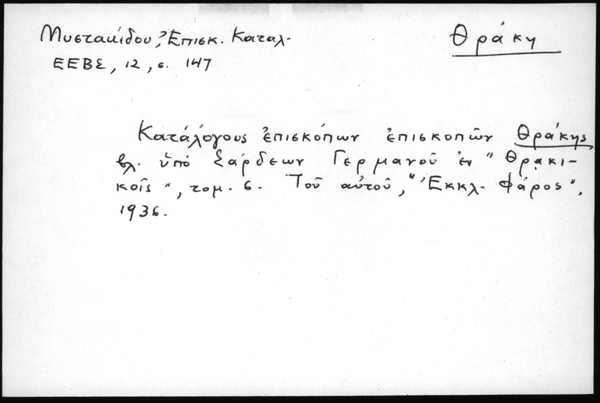 Μυστακίδου, Ἐπισκ. Καταλ.
Θράκη
ΕΕΒΣ, 12, σ. 147
Κατάλόγους ἐπισκόπων ἐπισκοπῶν Θράκης
βλ. ὑπό Σάρδεων Γερμανοῦ ἐν "Θρακι-
κοῖς", τομ. 6. Τοῦ αὐτοῦ, "Ἐκκλ. Φάρος",
1936.